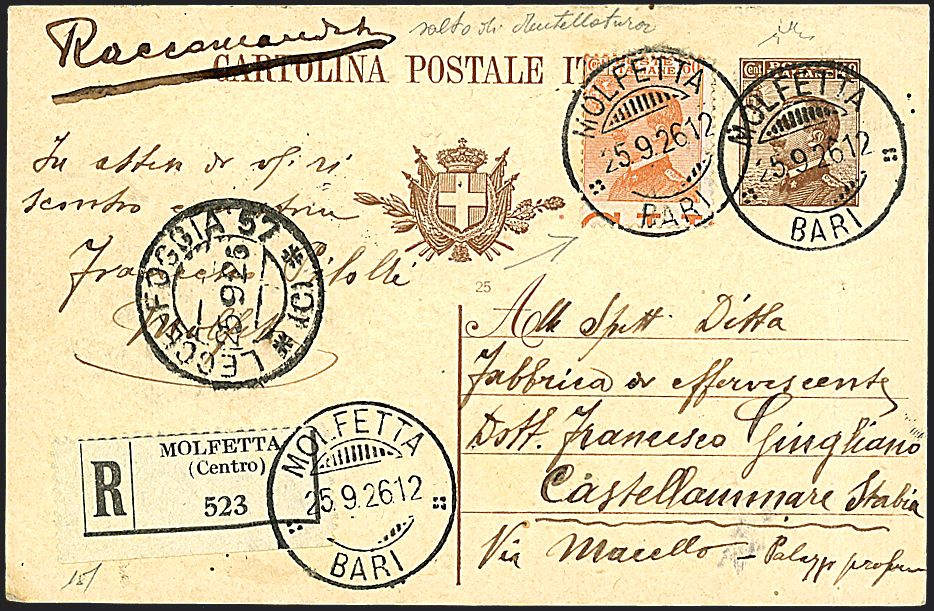 Raccomandata
salto di dentellatura
CARTOLINA POSTALE I
MOLFETTA
25.9.26 12
BARI
MOLFETTA
25.9.26 12
BARI
In attesa di
scontro
Francesco
25
LECCE FOGGIA 57
25 9 26
Alla Spett. Ditta
Fabbrica di effervescente
Dott. Francesco Giugliano
Castellammare Stabia
Via Macello - Palazzo
R
MOLFETTA
(Centro)
523
MOLFETTA
25.9.26 12
BARI